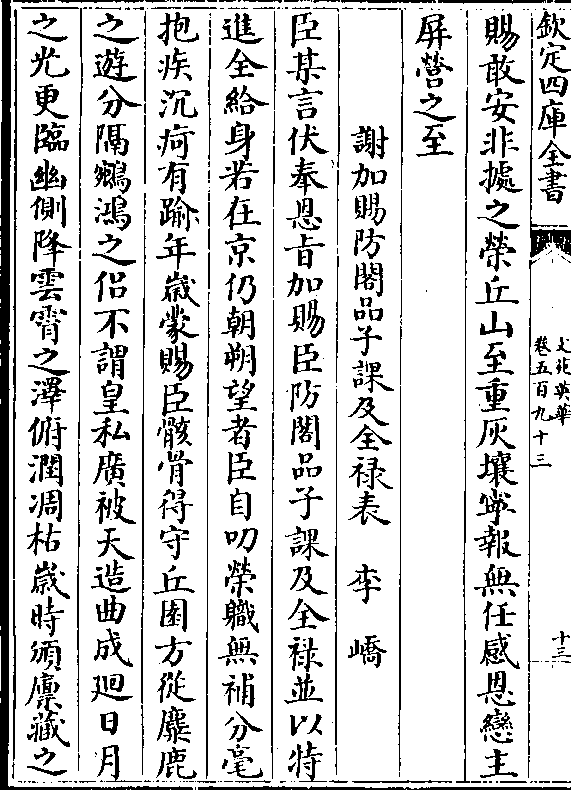 欽定四庫全書
文苑英華
卷五百九十三
十三
賜敢安非據之榮丘山至重灰壤寜報無任感恩戀主
屏營之至
謝加賜防閤品子課及全禄表　李嶠
臣某言伏奉恩旨加賜臣防閤品子課及全禄並以特
進全給身若在京仍朝朔望者臣自叨榮職無補分毫
抱疾沉疴有踰年嵗蒙賜臣骸骨得守丘園方從麋鹿
之遊分隔鵷鴻之侣不謂皇私廣被天造曲成廻日月
之光更臨幽側降雲霄之澤俯潤凋枯嵗時頒廪藏之